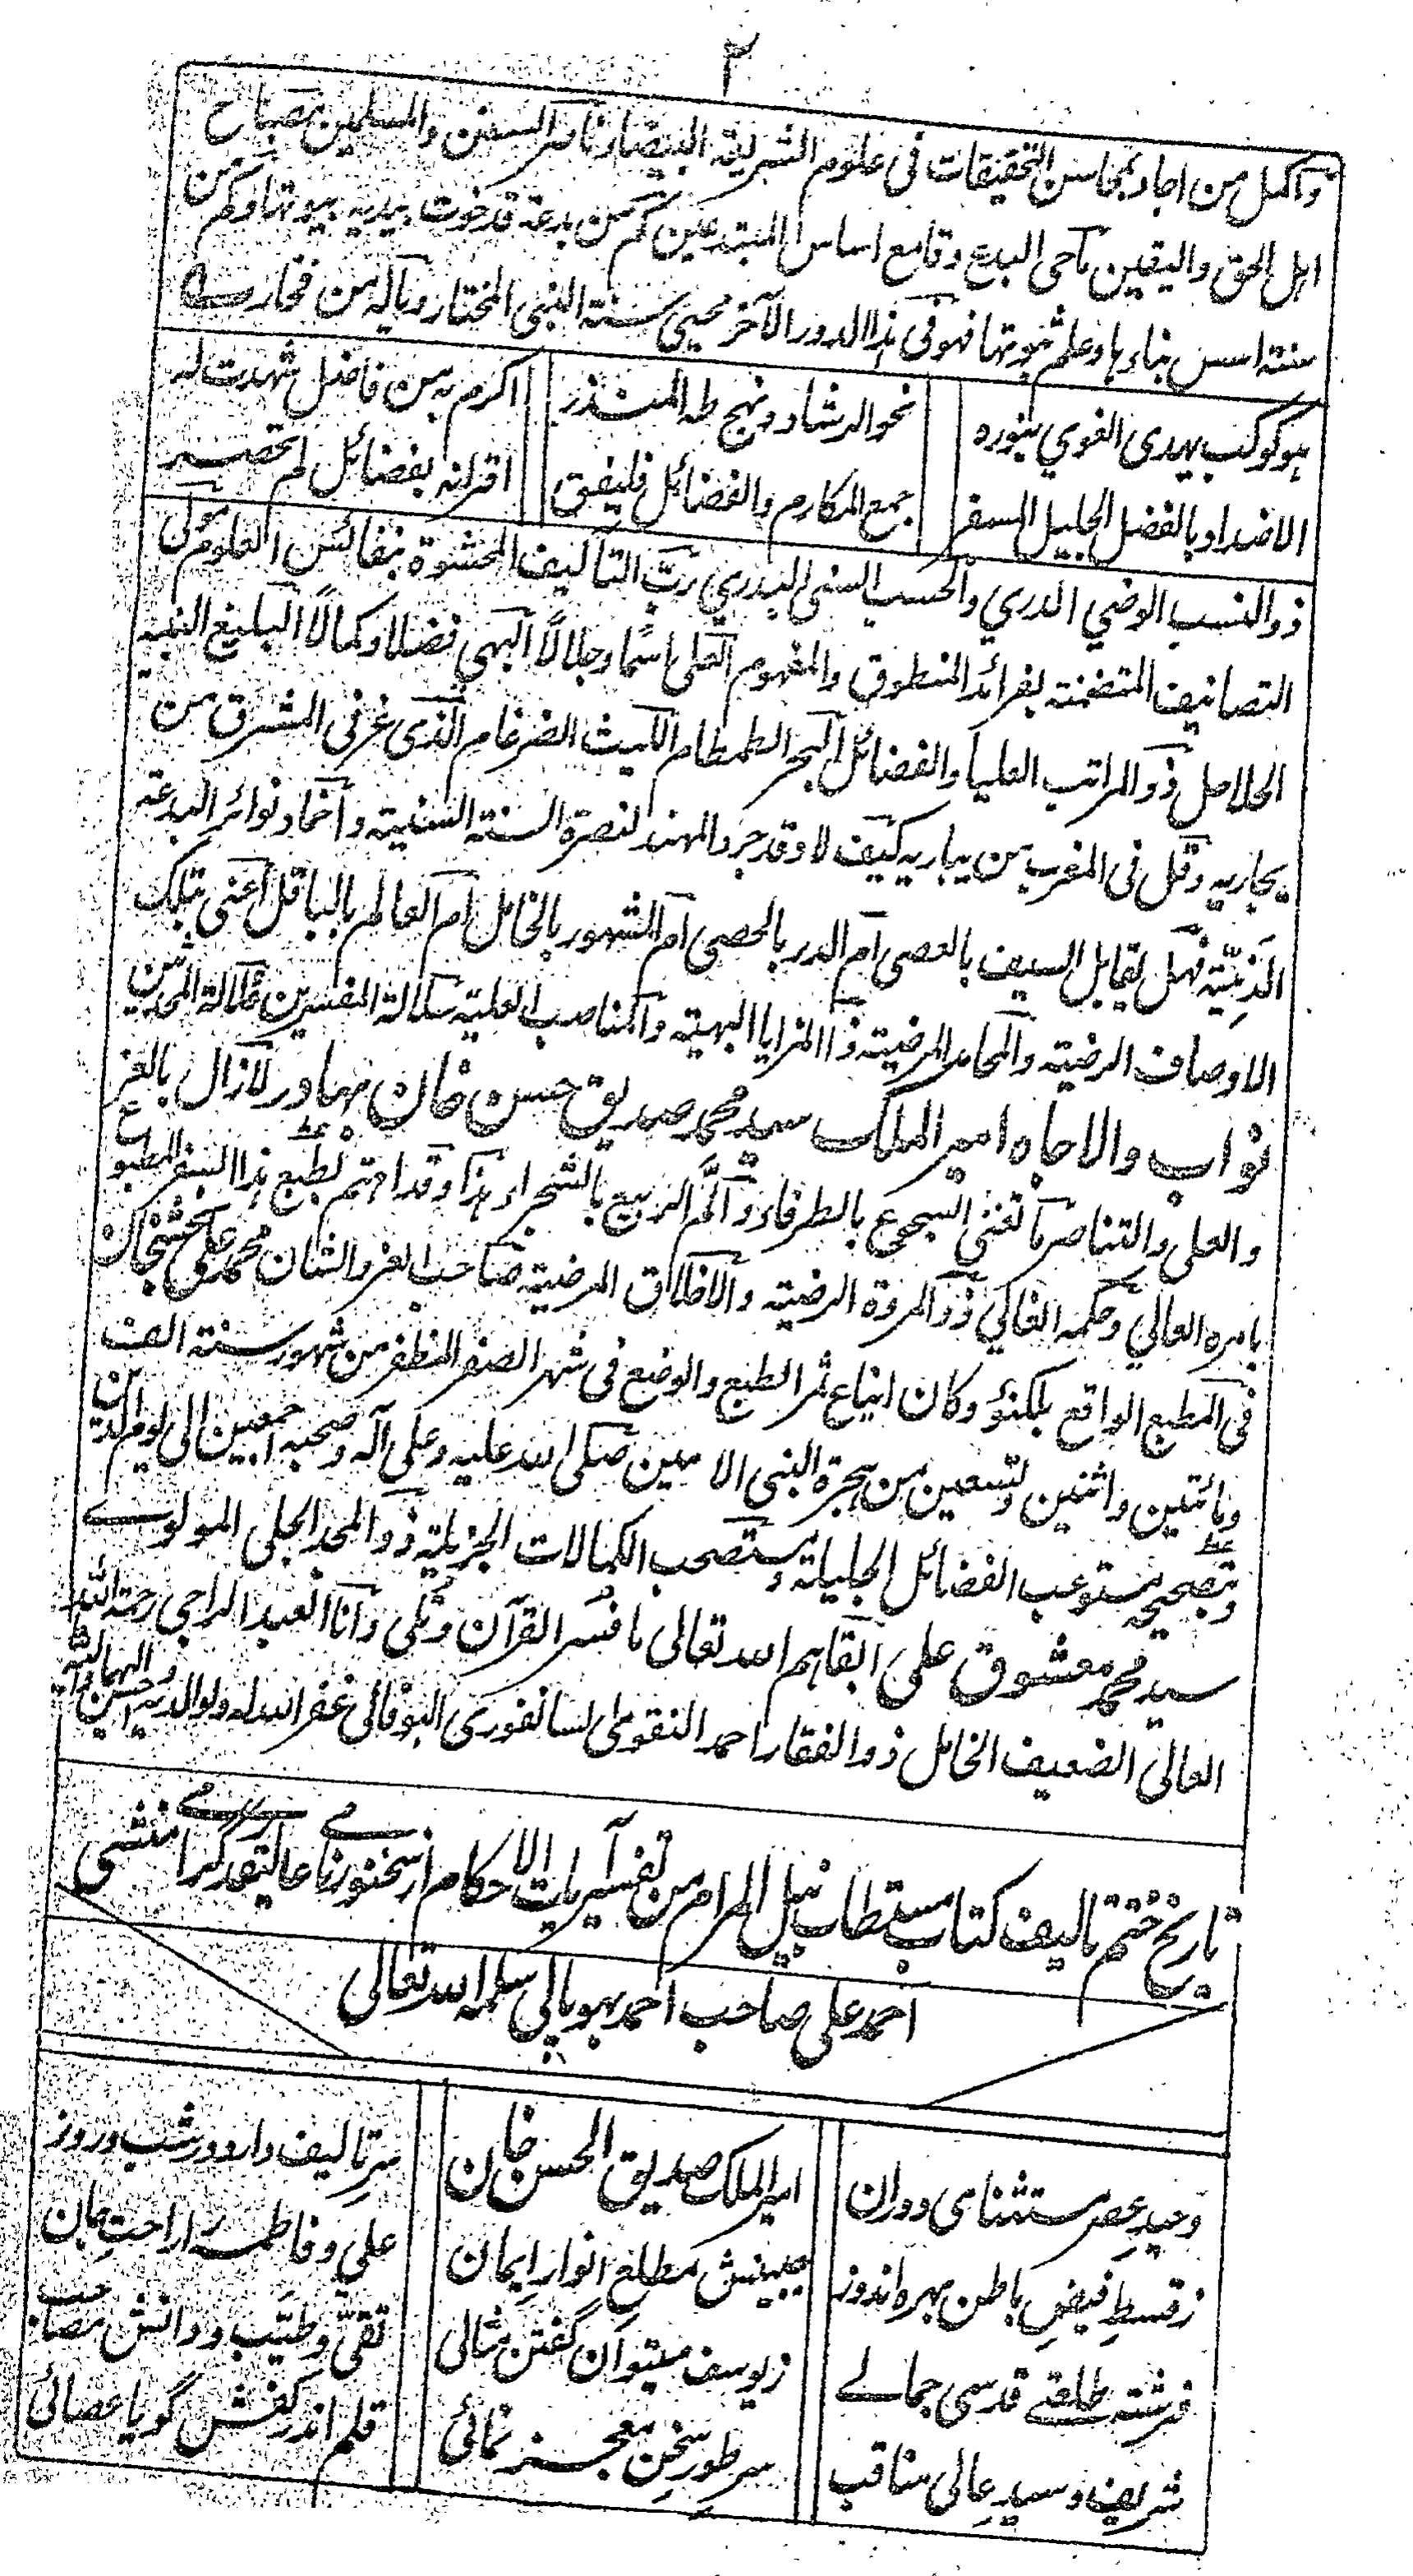 ٢
واكمل من اجاد بمحاسن التحقيقات فى علوم الشريعة البيضاء ناصر السنن والمسلمين مصباح
اهل الحق واليقين ماحى البدع وقامع اساس المبتدعين كم من بدعة قد خوت بيديه بيوتها وكم من
سنة اسس بناءها وعلم ثبوتها فهو فى هذا الدور الآخر محيى سنة النبى المختار وياله من فخار
هو كوكب يهدى الغوي بنوره نحو الرشاد ونهج طه المنذر اكرم به من فاضل شهدت له
الاضداد بالفضل الجليل السفر جمع المكارم والفضائل فليفق اقرانه بفضائل لم تحصر
ذو النسب الوضي الدري والحسب السنى البدري رب التاليف المحشوة بنفائس العلوم مولى
التصانيف المتضمنة بفرائد المنطوق والمفهوم العلى اسما وجلالا البهى فضلا وكمالا البليغ النبيه
الحلاحل ذو المراتب العليا والفضائل البحر الطمطام الليث الضرغام الذى عز فى المشرق من
يجاريه وقل فى المغرب من يباريه كيف لا وقد جرد المهند لنصرة السنة السنية واخماد نوائر البدعة
الدنية فهل يقابل السيف بالعصى ام الدر بالحصى ام المشهور بالخامل ام العالم بالباقل اعنى بتلك
الاوصاف الرضية والمحامد المرضية ذا المزايا البهية والمناصب العلية سلالة المفسرين ثمالة المحدثين
نواب والاجاه امير الملك سيد محمد صديق حسن خان بهادر لازال بالعز
والعلى والتناصر ما تغنى السجوع بالطرفاء والم الربيع بالشجراء هذا وقد اهتم بطبع هذا السفر المطبوع
بامره العالي وحكمه الغالي ذو المروة الرضية والاخلاق المرضية صاحب العز والشان محمد على بخشخان
فى المطبع الواقع بلكنؤ وكان ايناع ثمر الطبع والوضع فى شهر الصفر المظفر من شهور سنة الف
ومائتين واثنتين وتسعين من هجرة النبى الامين صلى الله عليه وعلى آله وصحبه اجمعين الى يوم الدين
وبتصحيح مستوعب الفضائل الجليلة ومستصحب الكمالات الجزيلة ذو المجد الجلى المولوي
سيد محمد معشوق على ابقاهم الله تعالى ما فسر القرآن وتلى وانا العبد الراجى رحمة الله
العالى الضعيف الخامل ذو الفقار احمد النقوى السانفورى البوفالى غفر الله له ولوالديه واحسن اليهما واليه
تاريخ ختم تاليف كتاب مستطاب نيل المرام من تفسير آيات الاحكام از سخنور نامى عاليقدر گرامى منشى
احمد على صاحب احمد بهوپالى سلمه الله تعالى
وحيد عصر مستثناى دوران امير الملك صديق الحسن خان سر تاليف دارد در شب و روز
ز قسط فيض باطن بهره اندوز جبينش مطلع انوار ايمان على و فاطمه را راحت جان
فرشته طلعتے قدسى جمالے ز يوسف ميتوان گفتن مثالى تقى و طيب و دانش مصاحب
شريف و سيد عالى مناقب سر طور سخن معجز نمائى قلم اندر كفش گويا عصائى